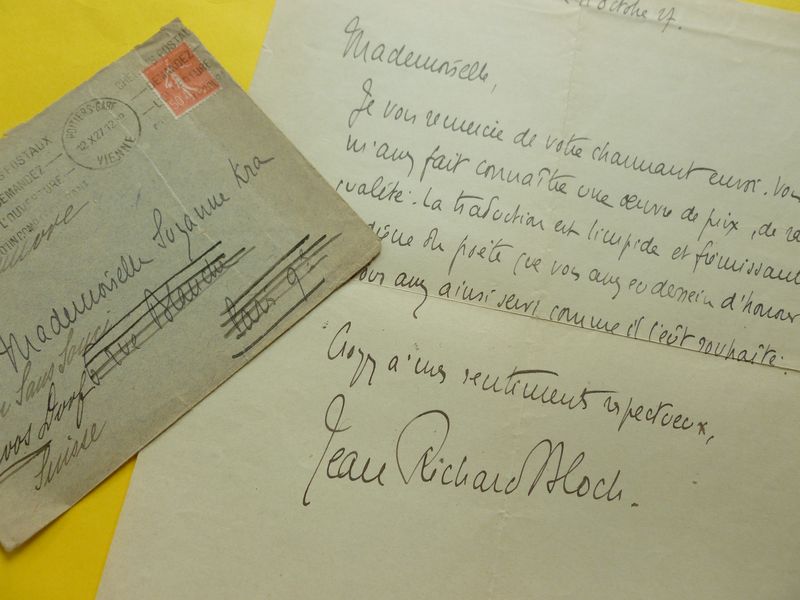 Octobre 27.
Mademoiselle,
Je vous remercie de votre charmant envoi. Vous
m'avez fait connaître une œuvre de prix, de
qualité. La traduction est limpide et frémissant
digne du poète que vous avez eu dessein d'honor
vous avez ainsi servi comme il l'eût souhaité.
Croyez à mes sentiments respectueux,
Jean Richard Bloch.
CHEQUES POSTAUX
DEMANDEZ
L'OUVERTURE
POITIERS-GARE
12.X.27
VIENNE
POSTAUX
DEMANDEZ
L'OUVERTURE
Mademoiselle Suzanne Kra
Rue Blanche
Paris 9e
Sans Souci
Davos Dorf
Suisse